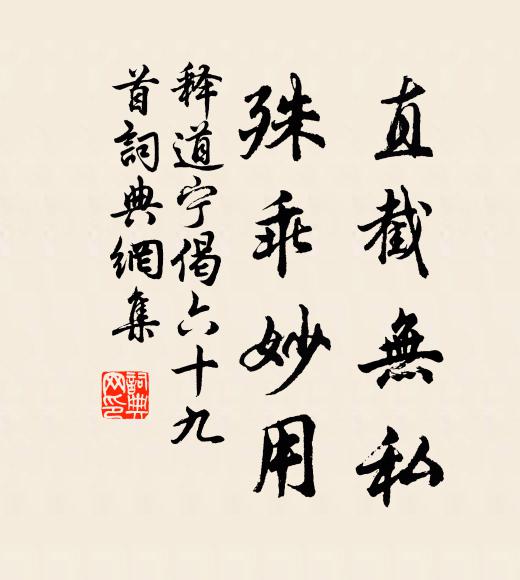 直截無私
殊乖妙用
释道宁偈六十九
首詞典網集
詞典
网印